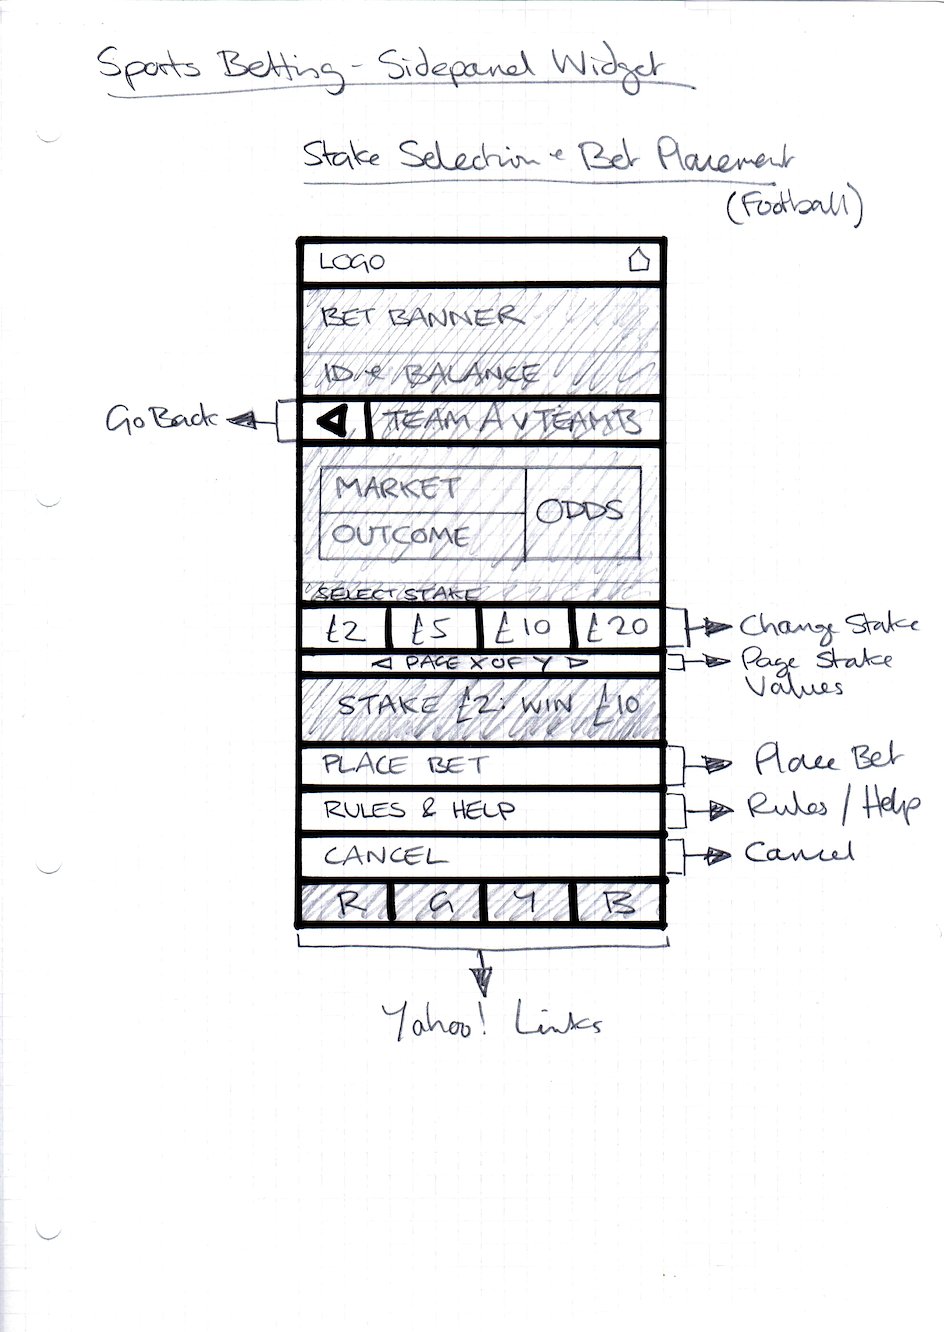 Sports Betting - Sidepanel Widget
Stake Selection & Bet Placement
(Football)
LOGO
BET BANNER
ID & BALANCE
Go Back
TEAM A V TEAM B
MARKET
ODDS
OUTCOME
SELECT STAKE
£2 £5 £10 £20
Change Stake
PAGE X OF Y
Page Stake
Values
STAKE £2: WIN £10
PLACE BET
Place Bet
RULES & HELP
Rules / Help
CANCEL
Cancel
R G Y B
Yahoo! Links